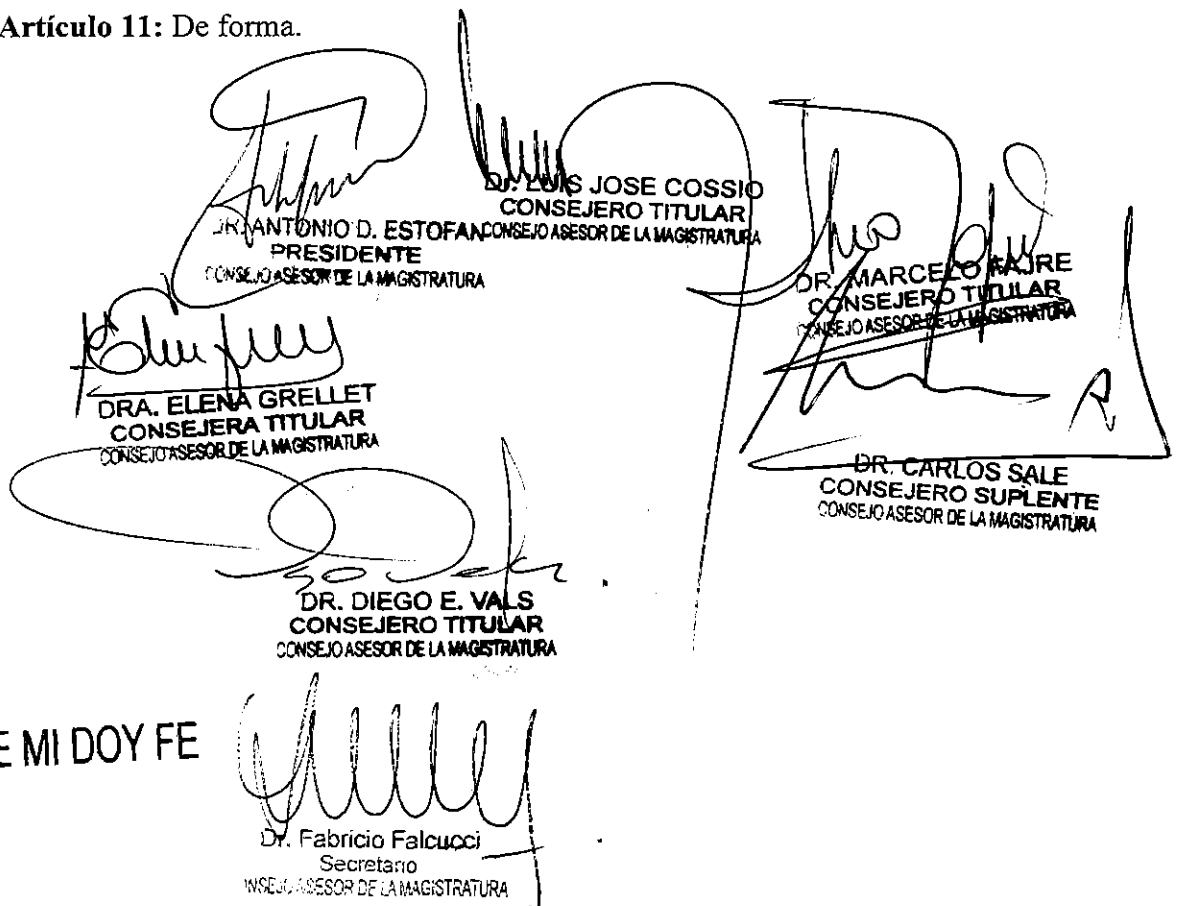 Artículo 11: De forma.
Dr. LUIS JOSE COSSIO
CONSEJERO TITULAR
CONSEJO ASESOR DE LA MAGISTRATURA
DR. ANTONIO D. ESTOFAN
PRESIDENTE
CONSEJO ASESOR DE LA MAGISTRATURA
DR. MARCELO FAJRE
CONSEJERO TITULAR
CONSEJO ASESOR DE LA MAGISTRATURA
DRA. ELENA GRELLET
CONSEJERA TITULAR
CONSEJO ASESOR DE LA MAGISTRATURA
DR. CARLOS SALE
CONSEJERO SUPLENTE
CONSEJO ASESOR DE LA MAGISTRATURA
DR. DIEGO E. VALS
CONSEJERO TITULAR
CONSEJO ASESOR DE LA MAGISTRATURA
E MI DOY FE
Dr. Fabricio Falcucci
Secretario
NSEJO ASESOR DE LA MAGISTRATURA